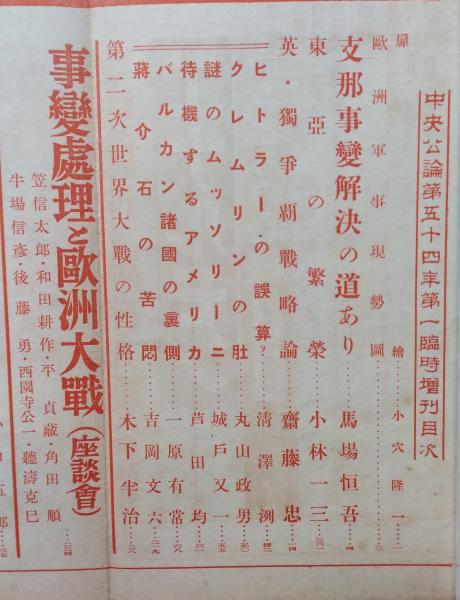 中央公論第五十四年第一臨時増刊目次
扉 繪……小穴隆一…一
歐洲軍事現勢圖……三
支那事變解決の道あり……馬場恒吾…四
東亞の繁榮……小林一三
英・獨爭覇戰略論……齋藤忠
ヒトラーの誤算?……淸澤洌
クレムリンの肚……丸山政男
謎のムッソリーニ……城戸又一
待機するアメリカ……芦田均
バルカン諸國の裏側……一原有常
蔣介石の苦悶……吉岡文六
第二次世界大戰の性格……木下半治
事變處理と歐洲大戰(座談會)
笠信太郎・和田耕作・平貞藏・角田順
牛場信彥・後藤勇・西園寺公一・聽濤克巳